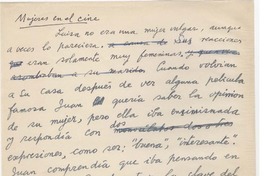 Mujeres en el cine
Luisa no era una mujer vulgar, aunque
a veces lo pareciese. Sus reacciones
eran solamente muy femeninas,
a su marido. Cuando volvían
a su casa después de ver alguna película
famosa Juan quería saber la opinión
de su mujer, pero ella iba ensimismada
y respondía con dos
expresiones, como ser: "buena", "interesante".
Juan comprendía que iba pensando en